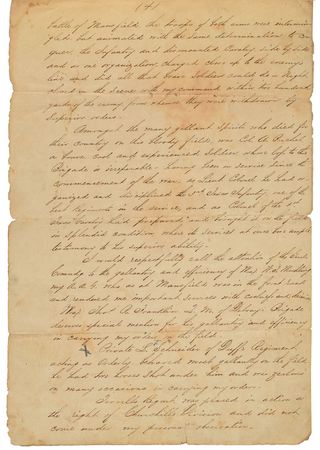 (4)
Battle of Mansfield the troops of both arms were intermin-
gled but animated with the same determination to con-
quer the Infantry and dismounted Cavalry side by side
and as one organization charged close up to the enemys
line and did all that brave Soldiers could do a Night
closed in the scene with my command within two hundred
yards of the enemy from whence they were withdrawn by
Superior orders.
Amongst the many gallant Spirits who died for
their Country on this bloody field, was Col
a brave cool and experienced Soldier whose loss to the
Brigade is irreparable having been in service since the
commencement of the war as Lieut Colonel he had or-
ganized and disciplined the 3rd Texas Infantry one of the
best regiments in the service, and as Colonel of the
Texas Cavalry had prepared and brought it on the field
in splendid condition where its services at once bore ample
testimony to his superior ability.
I would respectfully call the attention of the
Comndg to the gallantry and efficiency of Maj
my A.A.G. who as at Mansfield was in the front rank
and rendered me important services with
Maj Thos A Q.M. of Brigade
deserves special mention for his gallantry and efficiency
in carrying my orders in the field.
X Private Schneider of Duffs Regiment
acting as Orderly behaved most gallantly on the field
he had two horses Shot under him and was zealous
on many occasions in carrying my orders.
Terrells Regmt was placed in action on
the right of Churchills Division and did not
come under my personal observation.